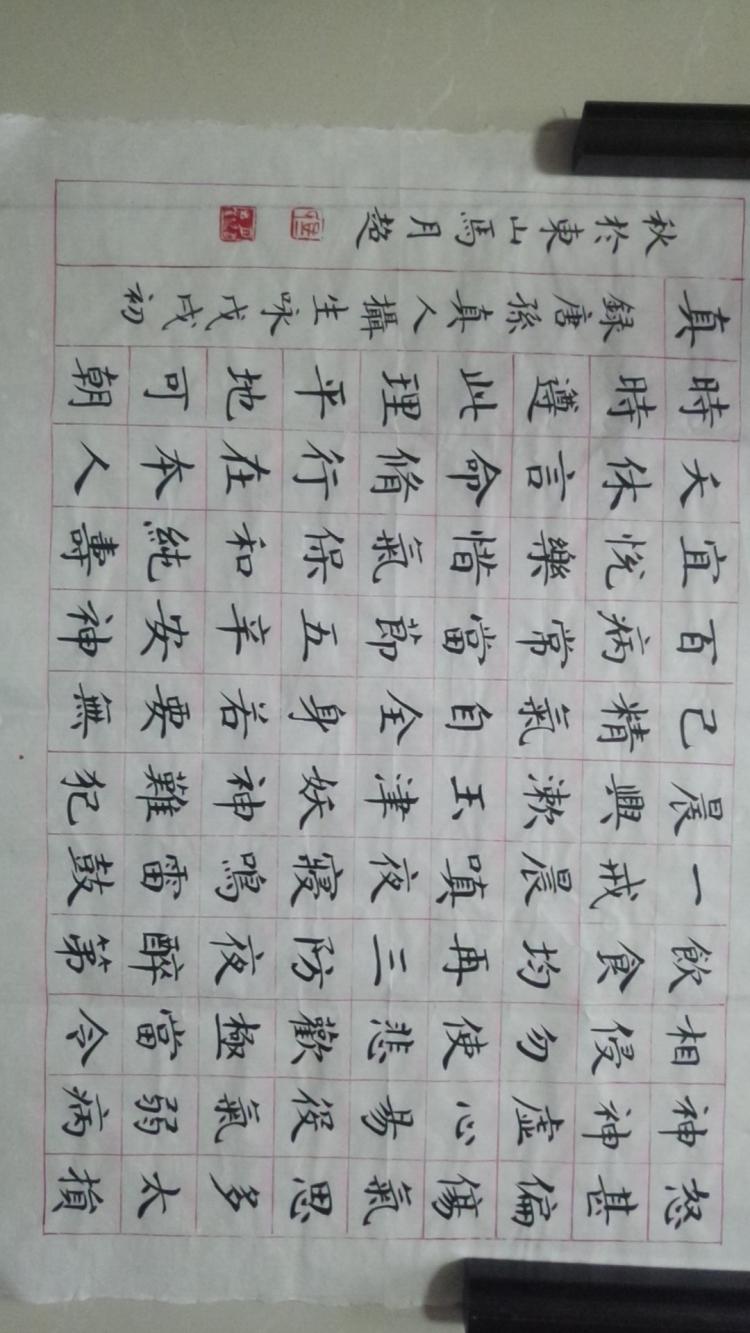 怒甚偏傷氣思多太損
神神虛心易役氣弱病
相侵勿使悲歡極當令
飲食均再三防夜醉第
一戒晨嗔夜寢鳴雷鼓
晨興漱玉津妖神難犯
己精氣自全身若要無
百病常當節五辛安神
宜悅樂惜氣保和純壽
夭休言命脩行在本人
時時遵此理平地可朝
真 録唐孫真人攝生咏戊戌初
秋於東山馬月超